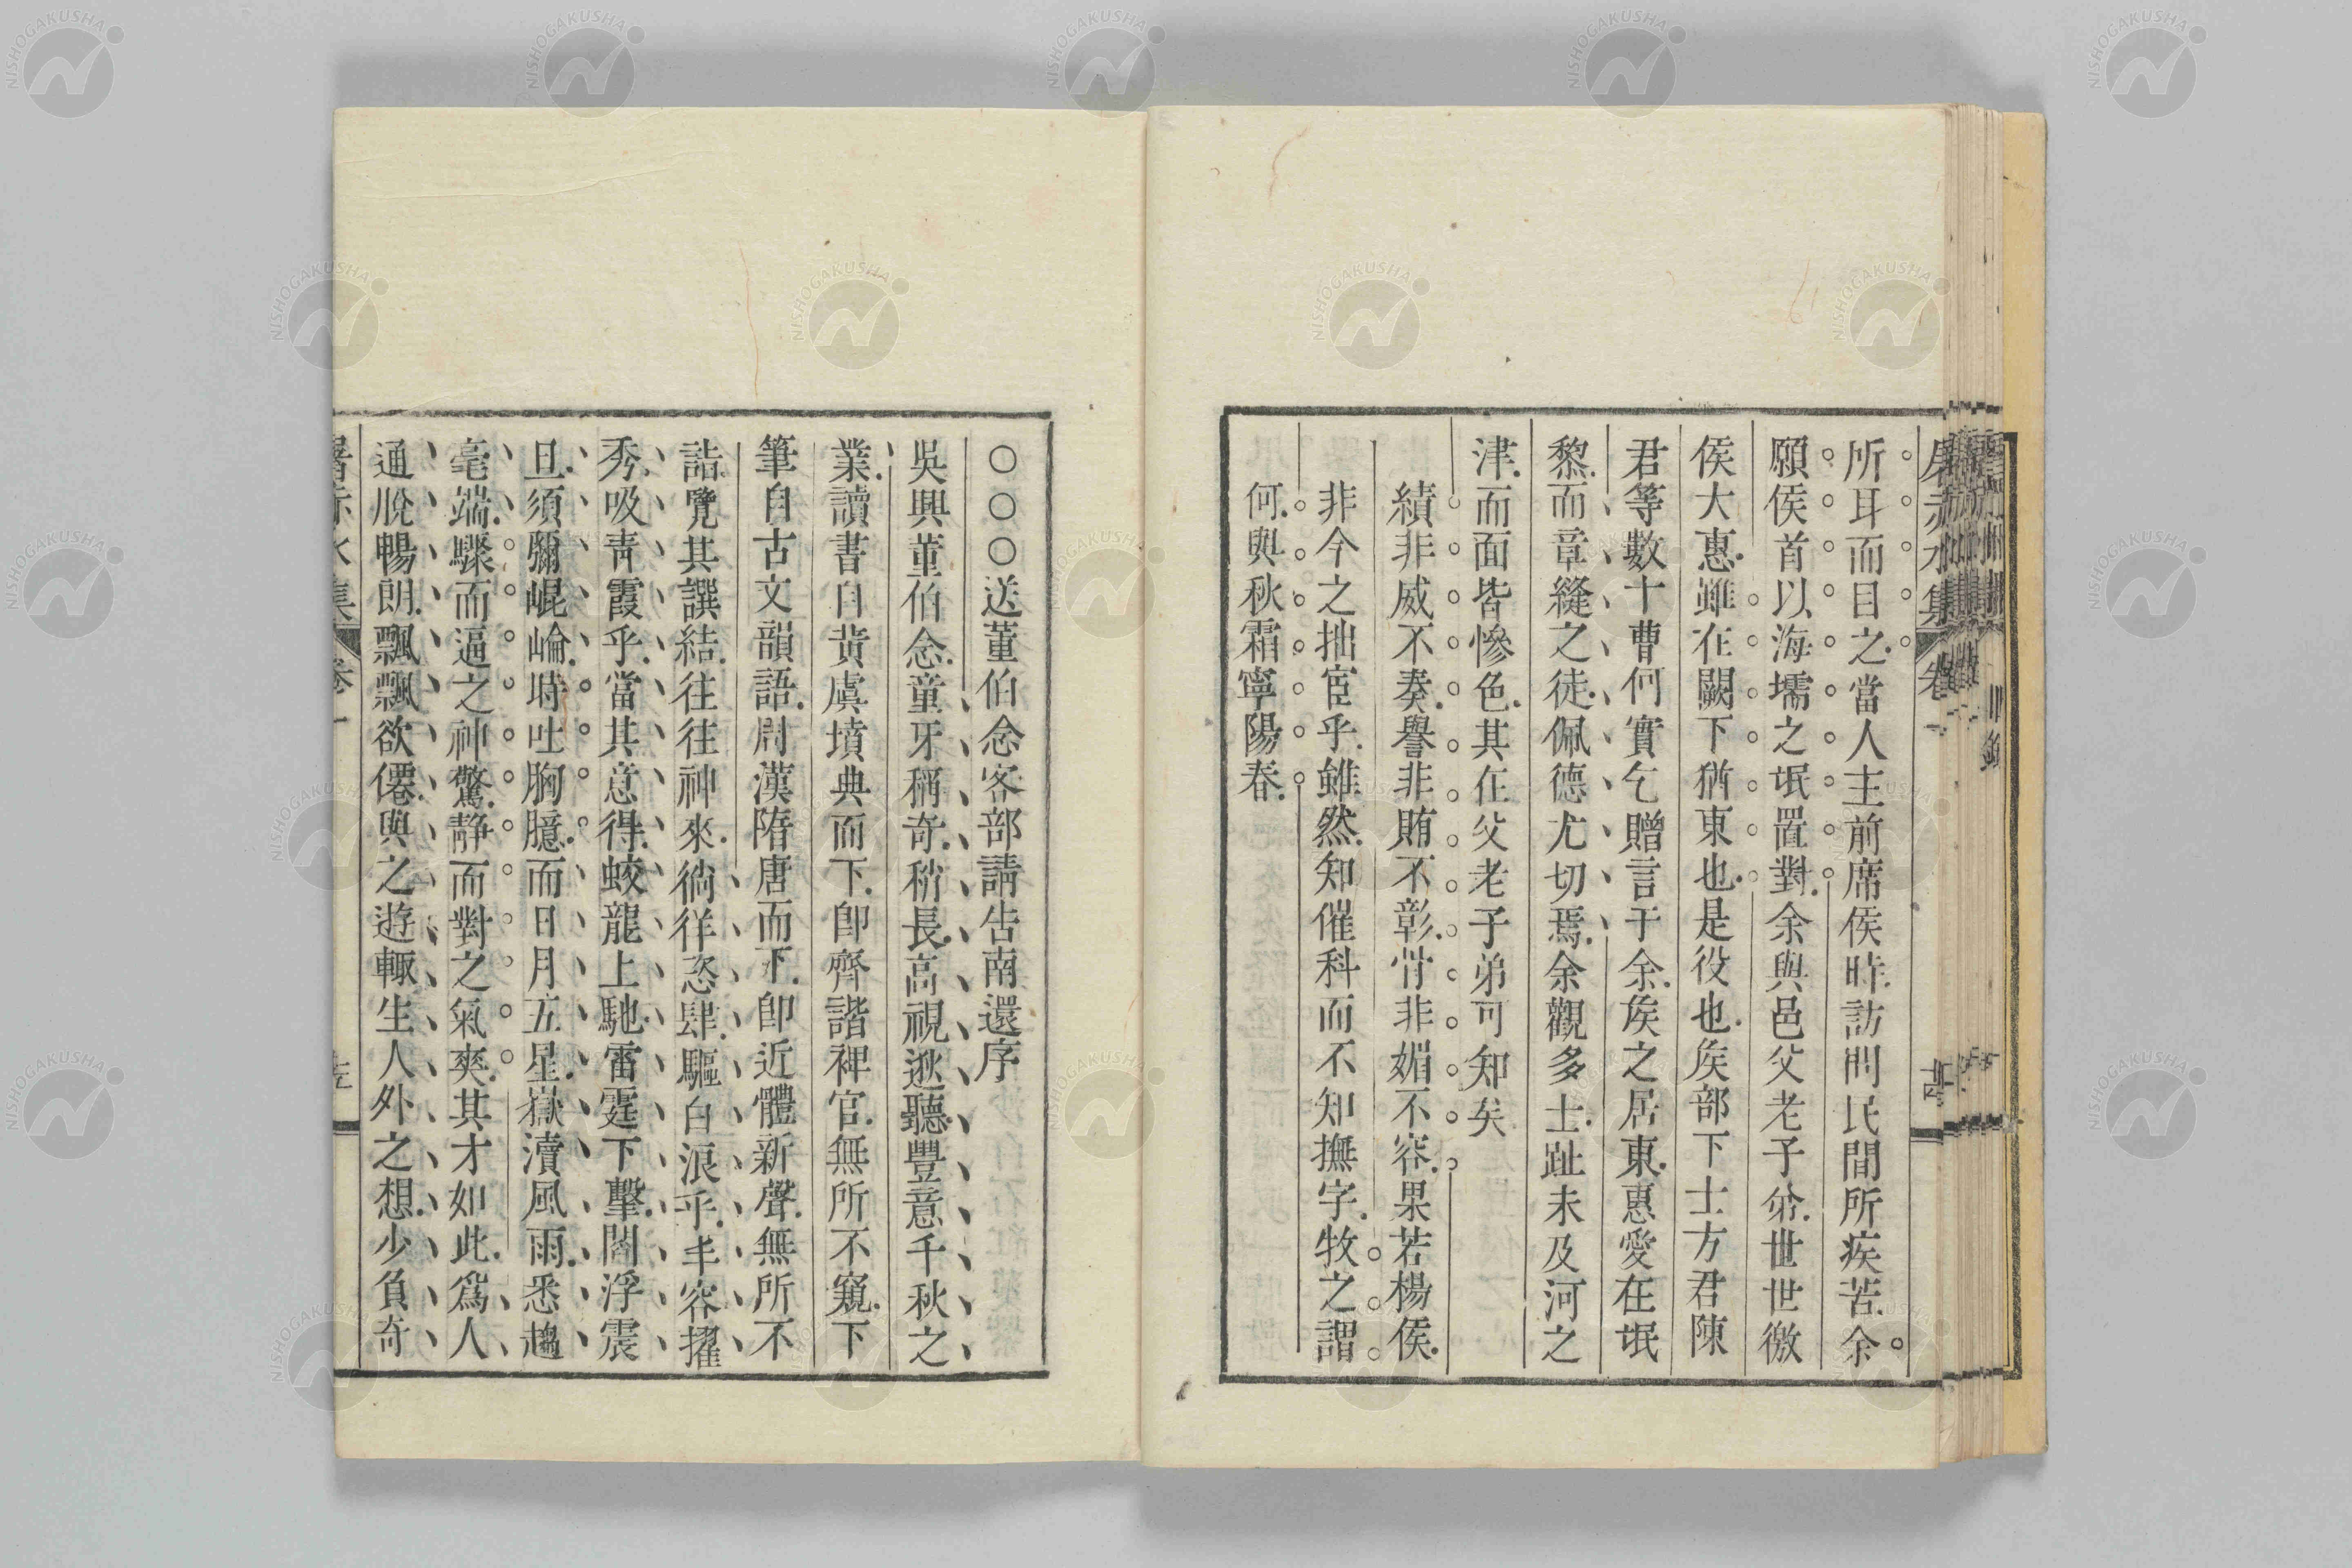 屠赤水集 卷一 廿四
所耳而目之當人主前席侯時訪問民間所疾苦余
願侯首以海壖之氓置對余與邑父老子弟世世徼
侯大惠雖在闕下猶東也是役也矦部下士方君陳
君等數十曹何實乞贈言于余矦之居東惠愛在氓
黎而章縫之徒佩德尤切焉余觀多士趾未及河之
津而面皆慘色其在父老子弟可知矣
績非威不奏譽非賄不彰骨非媚不容果若楊侯
非今之拙宦乎雖然知催科而不知撫字牧之謂
何與秋霜寧陽春
○○○送董伯念客部請告南還序
吳興董伯念童牙稱奇稍長高視逖聽豐意千秋之
業讀書自黃虞墳典而下卽齊諧裨官無所不窺下
筆自古文韻語周漢隋唐而下卽近體新聲無所不
詣覽其譔結往往神來徜徉恣肆驅白浪乎丰容擢
秀吸青霞乎當其意得蛟龍上馳雷霆下擊閤浮震
旦須彌崐崘時吐胸臆而日月五星嶽瀆風雨悉趨
毫端驟而逼之神驚靜而對之氣爽其才如此爲人
通脫暢朗飄飄欲僊與之遊輙生人外之想少負奇
屠赤水集 卷一
NISHOGAKUSHA